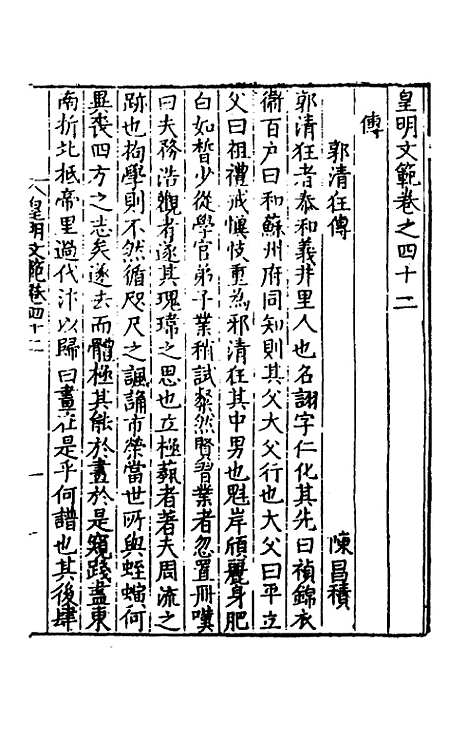 皇明文範卷之四十二
傳
郭清狂傳 陳昌積
郭清狂者泰和義井里人也名詡字仁化其先曰禎錦衣
衛百户曰和蘇州府同知則其父大父行也大父曰平立
父曰祖禮戒慎忮重為邪清狂其中男也魁岸頎麗身肥
白如皙少從學官弟子業稍試粲然賢習業者忽置冊嘆
曰夫務浩觀者遂其瑰瑋之思也立極蓺者著夫周流之
跡也拘學則不然循咫尺之諷誦市榮當世所與蛭螾何
異喪四方之志矣遂去而體極其能於畫於是窺踐盡東
南折北抵帝里過代汴以歸曰畫在是乎何譜也其後肆
皇明文範卷四十二 一